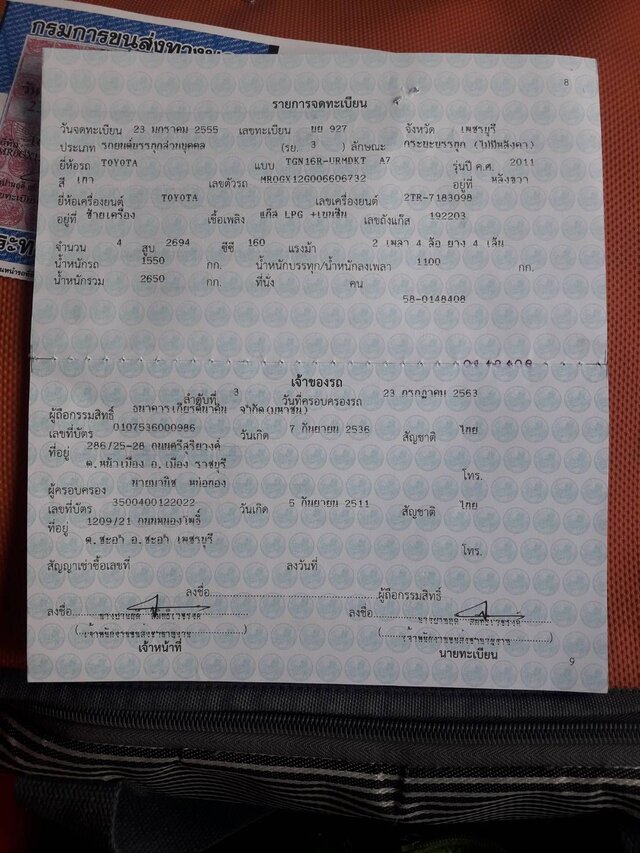 กรมการขนส่งทางบก
8
รายการจดทะเบียน
วันจดทะเบียน 23 มกราคม 2555 เลขทะเบียน 927 จังหวัด เพชรบุรี
ประเภท รถยนต์บรรทุกส่วนบุคคล (รย. 3 ) ลักษณะ กระบะบรรทุก (ไม่มีหลังคา)
ยี่ห้อรถ TOYOTA แบบ TGN16R-URMDKT A7 รุ่นปี ค.ศ. 2011
สี เทา เลขตัวรถ MR0GX12G006606732 อยู่ที่ หลังขวา
ยี่ห้อเครื่องยนต์ TOYOTA เลขเครื่องยนต์ 2TR-7183098
อยู่ที่ ซ้ายเครื่อง เชื้อเพลิง แก๊ส LPG +เบนซิน เลขถังแก๊ส 192203
จำนวน 4 สูบ 2694 ซีซี 160 แรงม้า 2 เพลา 4 ล้อ ยาง 4 เส้น
น้ำหนักรถ 1550 กก. น้ำหนักบรรทุก/น้ำหนักลงเพลา 1100 กก.
น้ำหนักรวม 2650 กก. ที่นั่ง คน
58-0148408
เจ้าของรถ
ลำดับที่ 3 วันที่ครอบครองรถ 23 กรกฎาคม 2563
ผู้ถือกรรมสิทธิ์ ธนาคารเกียรตินาคิน จำกัด(มหาชน)
เลขที่บัตร 0107536000986 วันเกิด 7 กันยายน 2536 สัญชาติ ไทย
ที่อยู่ 286/25-28 ถนนศรีสุริยวงศ์
ต.หน้าเมือง อ.เมือง ราชบุรี
โทร.
ผู้ครอบครอง นายมานิช
เลขที่บัตร 3500400122022 วันเกิด 5 กันยายน 2511 สัญชาติ ไทย
ที่อยู่ 1209/21
ต.ชะอำ อ.ชะอำ เพชรบุรี
โทร.
สัญญาเช่าซื้อเลขที่ ลงวันที่
ลงชื่อ ผู้ถือกรรมสิทธิ์
ลงชื่อ ลงชื่อ
เจ้าหน้าที่ นายทะเบียน
9